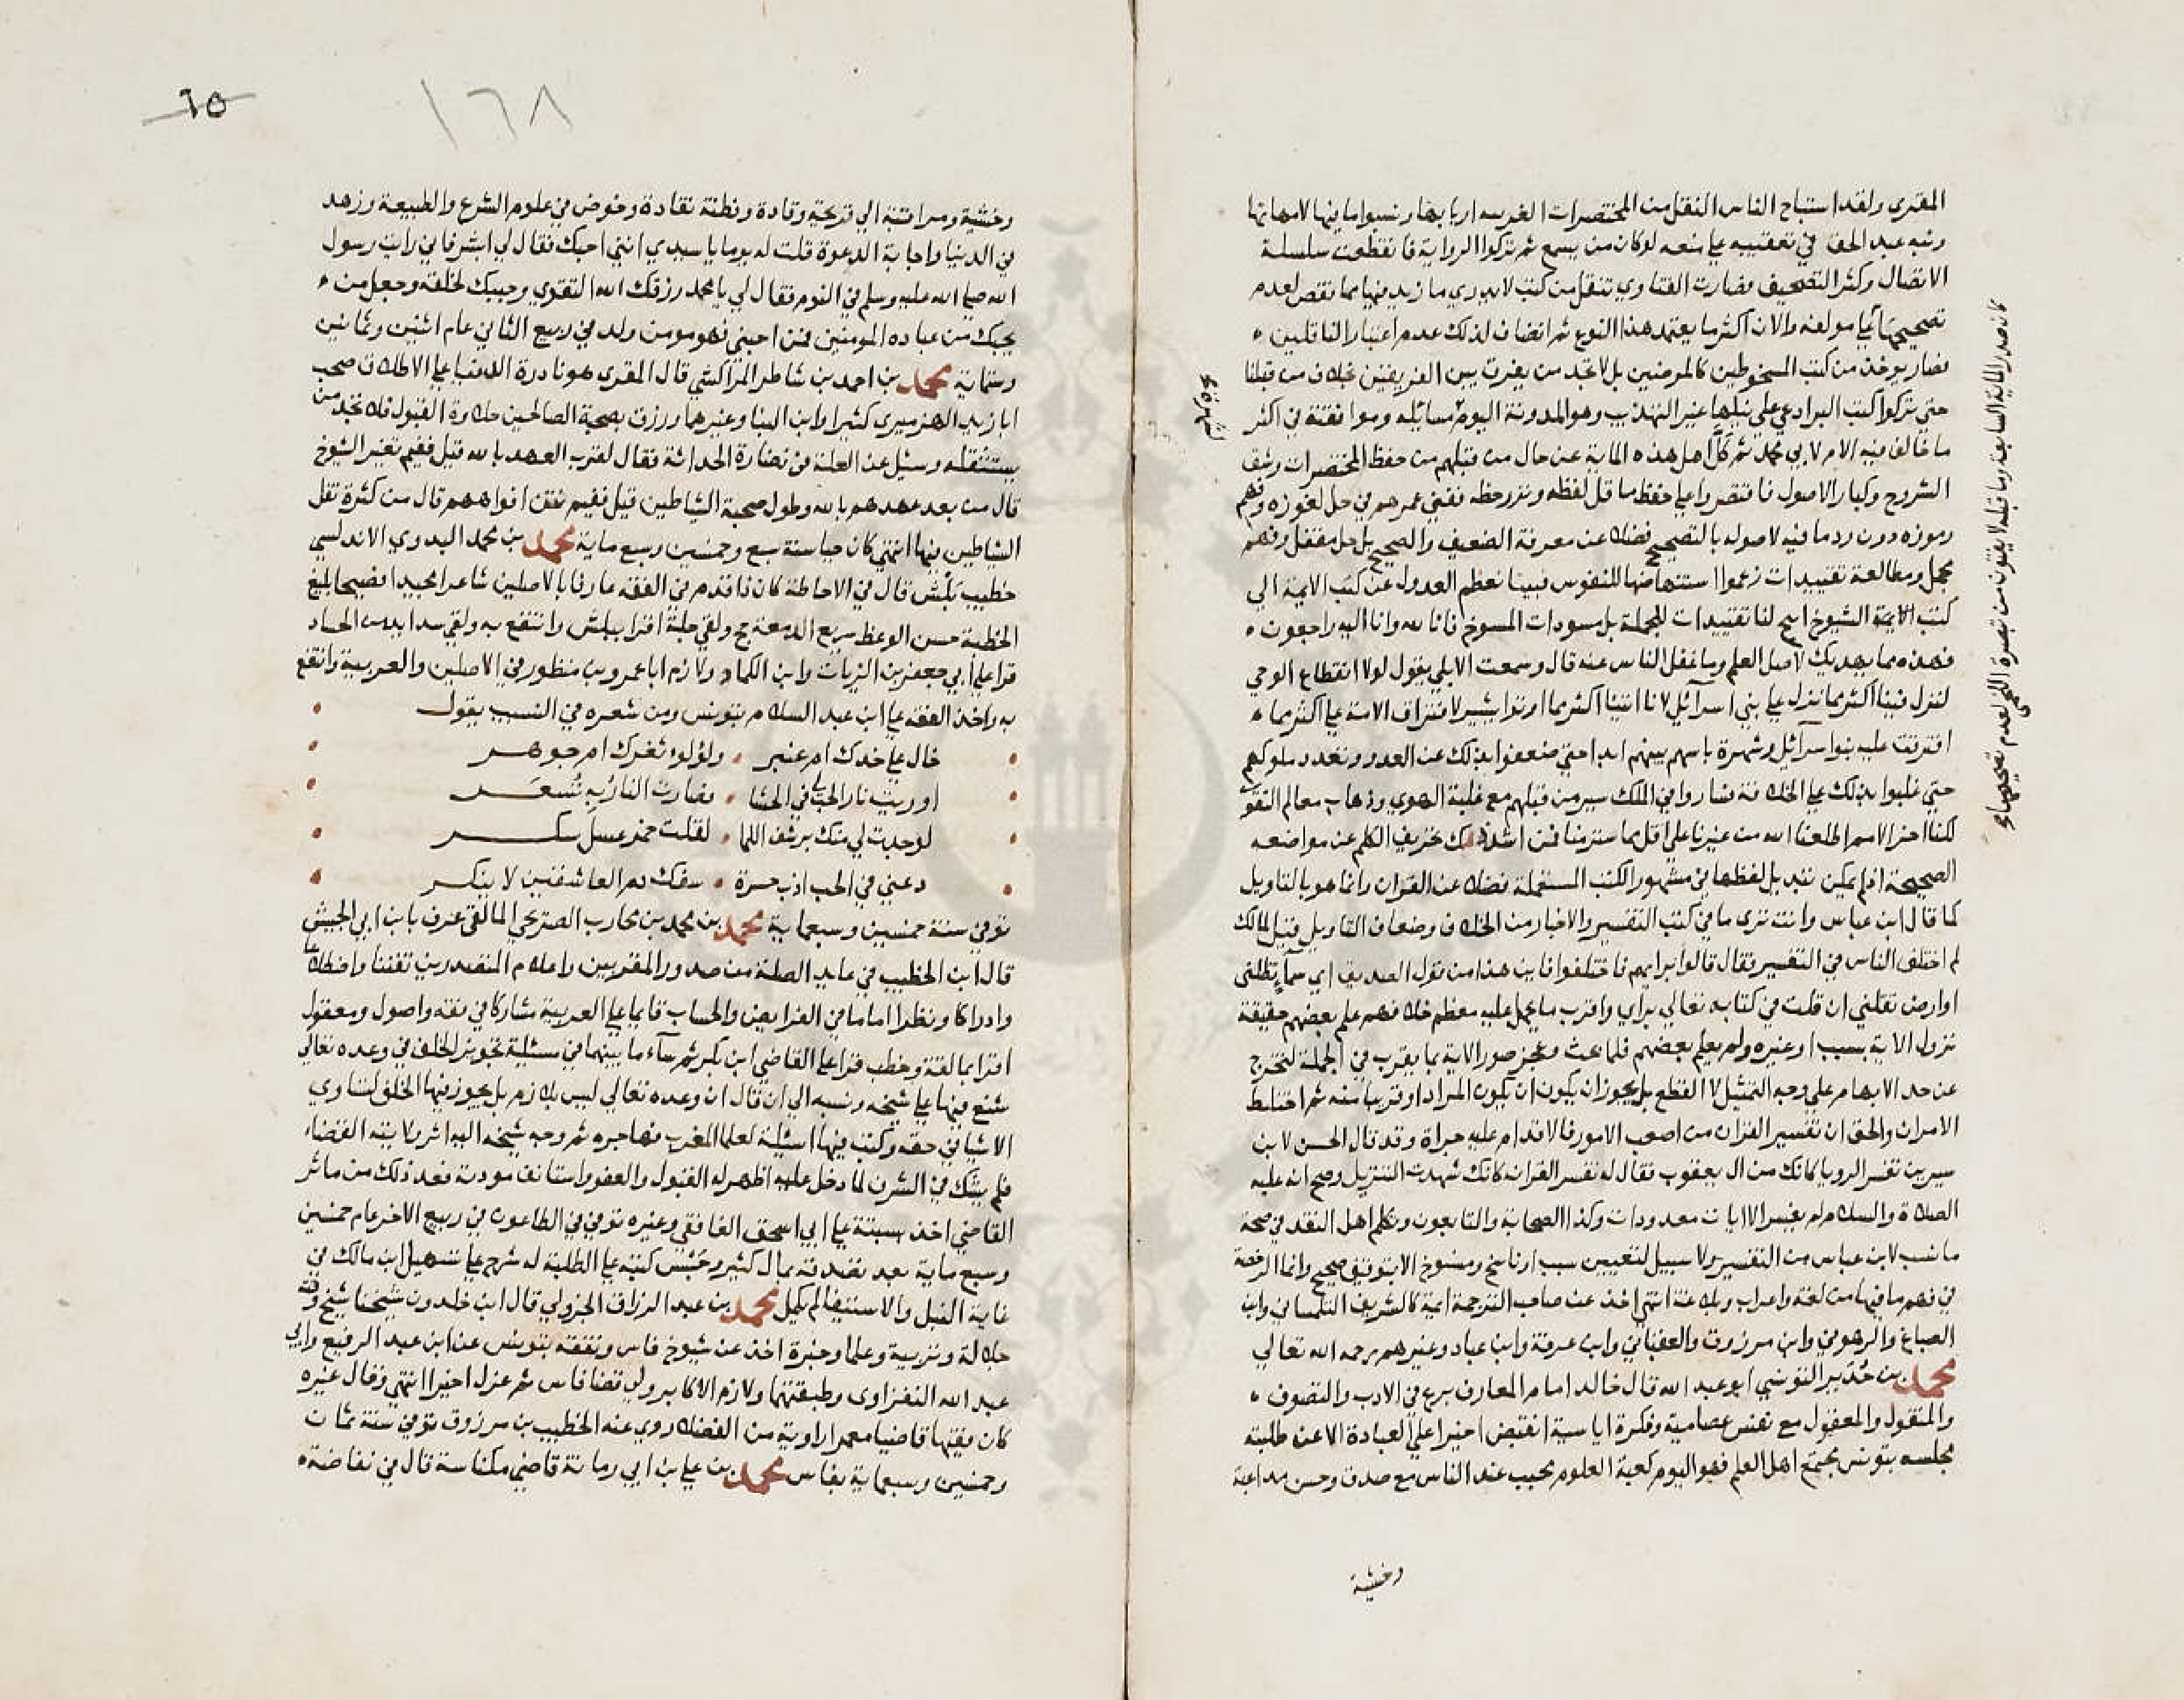 المقري ولقد استباح الناس النقل من المختصرات الغريبه اربابها ونسبوا ما فيها لامهاتها
ونبه عبد الحق في تعقيبه على منعه لو كان من يسمع ثم تركوا الرواية فانقطعت سلسلة
الاتصال وكثر التصحيف فصارت الفتاوي تنقل من كتب لا يدري ما زيد فيها مما نقص لعدم
تصحيحها على مولفه والان اكثر ما يعتمد هذا النوع ثم انضاف لذلك عدم اعتبار الناقلين
فصار يوخذ من كتب المسخوطين كالمرضيين بل لا تجد من يفرق بين الفريقين بخلاف من قبلنا
حتى تركوا كتب البرادعي على نبلها غير التهذيب وهو المدونة اليوم مسائله وموافقته في اكثر
ما خالف فيه الام لابي محمد ثم كل اهل هذه الماية عن حال من قبلهم من حفظ المختصرات وشق
الشروح وكبار الاصول فاقتصروا على حفظ ما قل لفظه ونزر حظه ففني عمرهم في حل لغوزه وفهم
رموزه دون رد ما فيه لاصوله بالتصحيح فضلا عن معرفة الضعيف والصحيح بل حل مقفل وفهم
مجمل ومطالعة تقييدات زعموا استنهاضها للنفوس فبينا نعظم العدول عن كتب الايمة الى
كتب الايمة الشيوخ اتيح لنا تقييدات للجهلة بل مسودات المسوخ فانا لله وانا اليه راجعون
فهذه مما يهديك لاصل العلم وما غفل الناس عنه قال وسمعت الابلي يقول لولا انقطاع الوحي
لنزل فينا اكثر مما نزل على بني اسرآئل لانا اتينا اكثر مما اوتوا يشير لافتراق الامة على اكثر مما
افترقت عليه بنوا اسرآئل وشهرة باسهم بينهم ابدا حتى ضعفوا بذلك عن العدو وتعدد ملوكهم
حتى غلبوا بذلك على الخلافة فساروا في الملك سير من قبلهم مع غلبة الهوي وذهاب معالم التقوى
لكنا اخر الامم اطلعنا الله من غيرنا على اقل مما ستر منا فمن اشد ذلك تحريف الكلم عن مواضعه
الصحيحة اذ لم يمكن تبديل لفظها في مشهور الكتب المستعملة فضلا عن القران وانما هو بالتاويل
كما قال ابن عباس وانت ترى ما في كتب التفسير والاخبار من الخلاف وضعاف التاويل قيل لمالك
لم اختلف الناس في التفسير فقال قالوا برايهم فاختلفوا فاين هذا من قول الصديق اي سمآء تظلني
او ارض تقلني ان قلت في كتابه تعالى براي واقرب ما يحمل عليه معظم خلافهم علم بعضهم حقيقة
نزول الاية بسبب او غيره ولم يعلم بعضهم فلما بحث وعجز صور الاية بما يقرب في الجملة لتخرج
عن حد الابهام على وجه التمثيل لا القطع بل يجوز ان يكون ان يكون المراد او قريبا منه ثم اختلط
الامران والحق ان تفسير القران من اصعب الامور فالاقدام عليه جراة وقد قال الحسن لابن
سيرين تفسر الرويا كانك من ال يعقوب فقال له تفسر القران كانك شهدت التنزيل وصح انه عليه
الصلاة والسلام لم يفسر الا ايات معدودات وكذا الصحابة والتابعون وتكلم اهل النقد في صحة
ما نسب لابن عباس من التفسير ولا سبيل لتعيين سبب او ناسخ ومنسوخ الا بتوقيف صحيح وانما الرخصة
في فهم ما فيها من لغة واعراب وبلاغة انتهى اخذ عن صاحب الترجمة ايمة كالشريف التلمساني وابن
الصباغ والرهوني وابن مرزوق والعقباني وابن عرفة وابن عباد وغيرهم رحمه الله تعالى
محمد بن خدير التونسي ابو عبد الله قال خالد امام المعارف برع في الادب والتصوف
والمنقول والمعقول مع نفس عصامية وفكرة اياسية انقبض اخيرا على العبادة الا عن طلبته
مجلسه بتونس مجتمع اهل العلم فهو اليوم كعبة العلوم محبب عند الناس مع صدق وحسن مداعبة
وخشية
لابن يونس صح
كان صدر الماية السابعة وما قبله لا يفتون من تبصرة اللخمي لعدم تصحيحها صح
١٦٨
٦٥
وخشية ومراقبة الي قريحة وقادة وفطنة نقادة وخوض في علوم الشرع والطبيعة وزهد
في الدنيا واجابة الدعوة قلت له يوما يا سيدي انني احبك فقال لي ابشر فاني رايت رسول
الله صلى الله عليه وسلم في النوم فقال لي يا محمد رزقك الله التقوي وحببك لخلقه وجعل من
يحبك من عباده المومنين فمن احبني فهو مومن ولد في ربيع الثاني عام اثنين وثمانين
وستماية محمد بن احمد بن شاطر المراكشي قال المقري هو نادرة الدنيا على الاطلاق صحب
ابا زيد الهزميري كثيرا وابن البنا وغيرهما ورزق بصحبة الصالحين حلاوة القبول فلا تجد من
يستثقله وسئل عن العلة في نضارة الحداثة فقال لقرب العهد بالله قيل ففيم تغير الشيوخ
قال من بعد عهدهم بالله وطول صحبة الشياطين قيل ففيم نتن افواههم قال من كثرة تفل
الشياطين فيها انتهى كان حيا سنة سبع وخمسين وسبع ماية محمد بن محمد البدوي الاندلسي
خطيب بلش قال في الاحاطة كان ذا قدم في الفقه عارفا بالاصلين شاعرا مجيدا فصيحا بليغ
الخطبة حسن الوعظ سريع الدمعة حج ولقي جلة اقرا ببلش وانتفع به ولقي شدايد من الحساد
قرا على ابي جعفر بن الزيات وابن الكماد ولازم ابا عمرو بن منظور في الاصلين والعربية وانتفع
به واخذ الفقه على ابن عبد السلام بتونس ومن شعره في النسيب يقول
خال على خدك ام عنبر ولؤلؤ ثغرك ام جوهر
اوريت نار الحب في الحشا فصارت النار به تسعر
لو جدت لي منك برشف اللما لقلت خمر عسل سكر
دعني في الحب اذب حسرة سفك دم العاشقين لا ينكر
توفي سنة خمسين وسبعماية محمد بن محمد بن محارب الصريحي المالقي عرف بابن ابي الجيش
قال ابن الخطيب في عايد الصلة من صدور المقربين واعلام المتصدرين تفننا واضطلاعا
وادراكا ونظرا اماما في الفرايض والحساب قايما على العربية مشاركا في فقه واصول ومعقول
اقرا بمالقة وخطب قرا على القاضي ابن بكر ثم سآء ما بينهما في مسئلة تجويز الخلف في وعده تعالى
شنع فيها على شيخه ونسبه الى ان قال ان وعده تعالى ليس بلازم بل يجوز فيها الخلف لتساوي
الاشيا في حقه وكتب فيها اسئلة لعلما المغرب فهاجره ثم وجه شيخه اليه اثر ولايته القضاء
فلم يشك في الشر فلما دخل عليه اظهر له القبول والعفو واستانف مودته فعد ذلك من ماثر
القاضي اخذ بسبتة على ابي اسحق الغافقي وغيره توفي في الطاعون في ربيع الاخر عام خمسين
وسبع ماية بعد تصدقه بمال كثير وحبس كتبه على الطلبة له شرح على تسهيل ابن مالك في
غاية النبل والاستيفا لم يكمل محمد بن عبد الرزاق الجزولي قال ابن خلدون شيخنا شيخ وقته
جلالة وتربية وعلما وخبرة اخذ عن شيوخ فاس وتفقه بتونس عن ابن عبد الرفيع وابي
عبد الله النفزاوى وطبقتهما ولازم الاكابر ولي قضا فاس ثم عزل اخيرا انتهى وقال غيره
كان فقيها قاضيا معمرا راوية من الفضلا روي عنه الخطيب بن مرزوق توفي سنة ثمان
وخمسين وسبعماية بفاس محمد بن علي بن ابي رمانة قاضي مكناسة قال في نفاضة